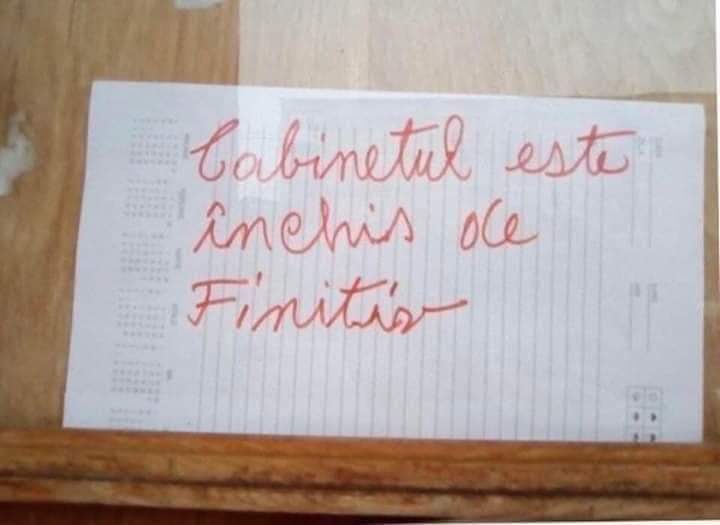 Cabinetul este
închis de
Finitiv